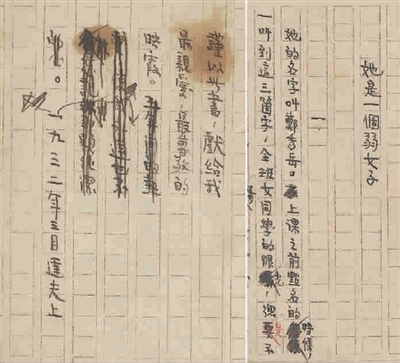 她是一個弱女子
一
她的名字叫鄭秀岳。上课之前點名的時候
一听到這三箇字，全班女同學的眼光，要不
謹以此書，獻給我
最親愛，最尊敬的
映霞。
一九三二年三月達夫上